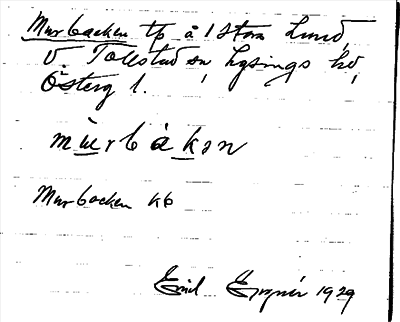 Murbacken tp å 1 Stora Lund,
V. Tolstad sn Lysings hd,
Österg l.
mu̇rbàkən
Murbacken kb
Emil 1929